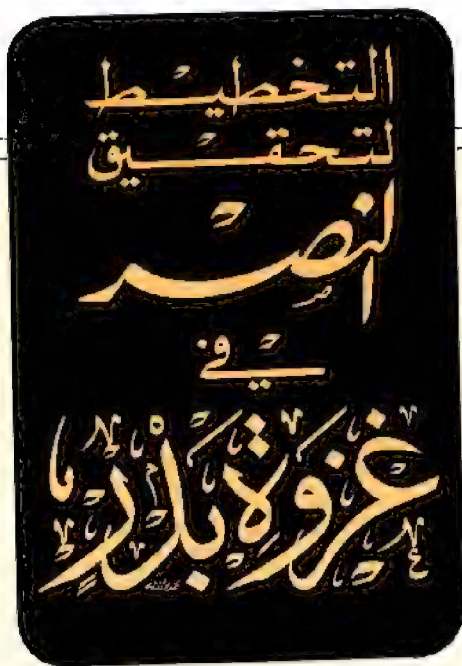 التخطيط
لتحقيق
النصر
في
غزوة بدر